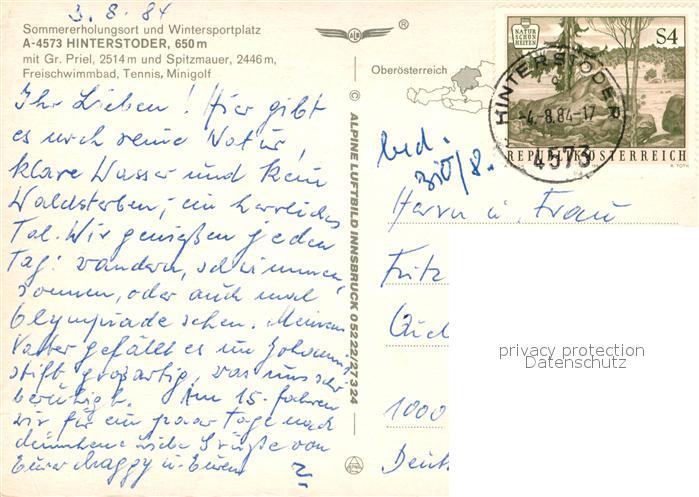 3.8.84
Sommererholungsort und Wintersportplatz
A-4573 HINTERSTODER, 650 m
mit Gr. Priel, 2514 m und Spitzmauer, 2446 m,
Freischwimmbad, Tennis, Minigolf
Ihr Lieben! Hier gibt
es noch reine Natur,
klare Wasser und kein
Waldsterben; ein herrliches
Tal. Wir genießen jeden
Tag: wandern, schwimmen,
sonnen, oder auch mal
Olympiade sehen. Meinem
Vater gefällt es im Johannis
stift großartig, was uns sehr
beruhigt. Am 15. fahren
wir für ein paar Tage nach
viele Grüße von
Eurer Maggy u. Eurem
© ALPINE LUFTBILD INNSBRUCK 05222/27324
®
Oberösterreich
NATUR
SCHÖN
HEITEN
S4
HINTERSTODER
-4.-8.84-17
4573
REPUBLIK ÖSTERREICH
A. TOTH
Herrn u. Frau
Fritz
privacy protection
Datenschutz
1000